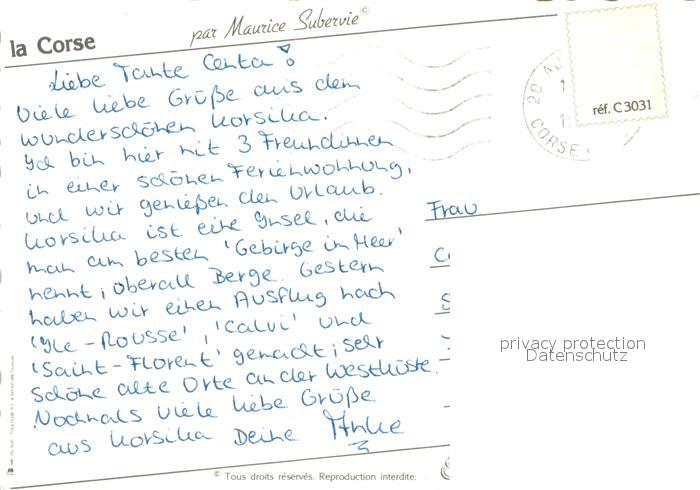 la Corse
par Maurice Subervie©
Liebe Tante Centa!
Viele liebe Grüße aus dem
wunderschönen Korsika.
Ich bin hier mit 3 Freundinnen
in einer schönen Ferienwohnung,
und wir genießen den Urlaub.
Korsika ist eine Insel, die
man am besten 'Gebirge im Meer'
nennt; überall Berge. Gestern
haben wir einen Ausflug nach
'Ile-Rousse', 'Calvi' und
'Saint-Florent' gemacht; sehr
schöne alte Orte an der Westküste.
Nochmals viele liebe Grüße
aus Korsika Deine Anke
réf. C 3031
20
CORSE
Frau
privacy protection
Datenschutz
© Tous droits réservés. Reproduction interdite.